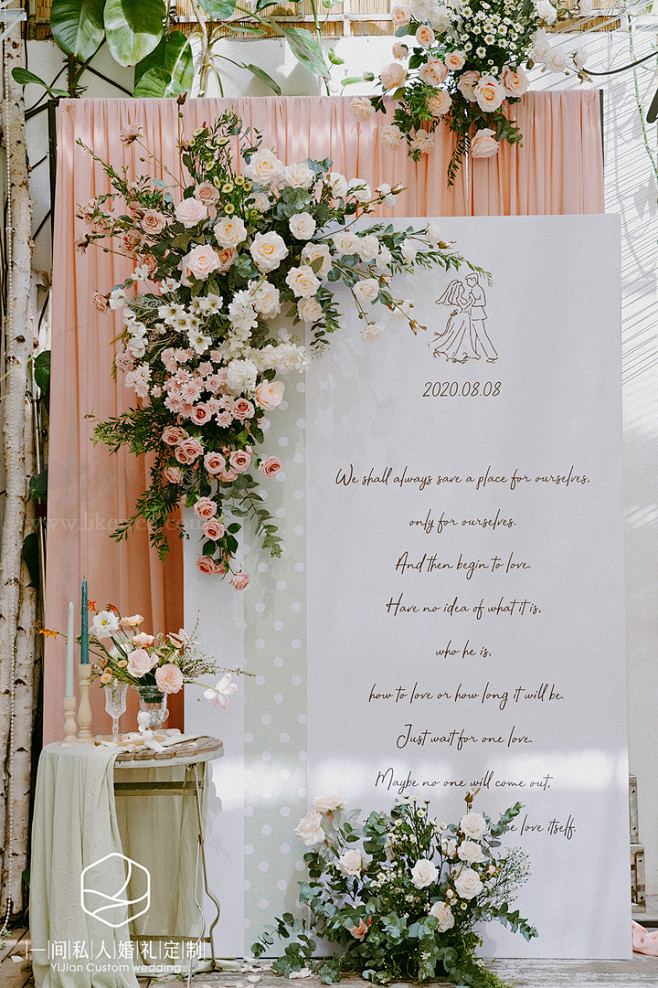 2020.08.08
We shall always save a place for ourselves,
only for ourselves.
And then begin to love.
Have no idea of what it is,
who he is,
how to love or how long it will be.
Just wait for one love.
Maybe no one will come out,
be love itself.
一间|私|人|婚|礼|定|制
YiJian Custom wedding